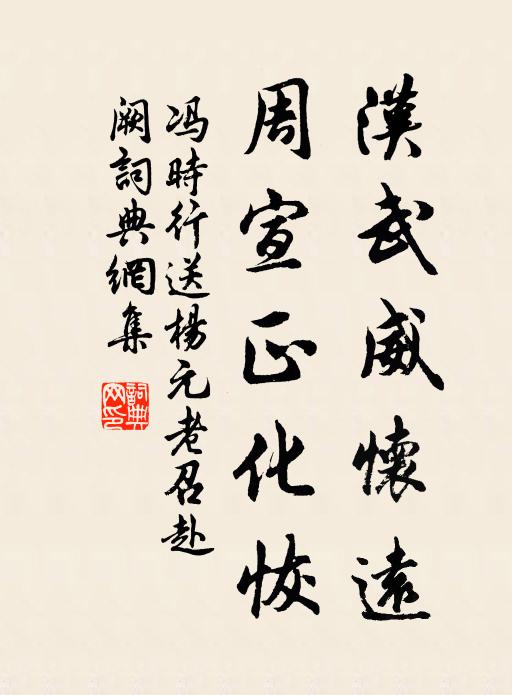 漢武威懷遠
周宣正化恢
冯時行送楊元老召赴
阙詞典網集
詞典網印